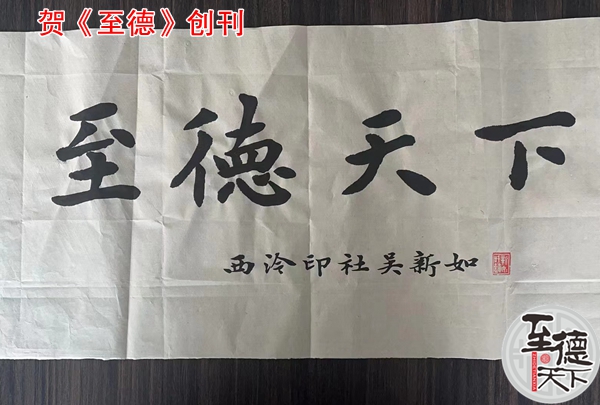 贺《至德》创刊
至德天下
西泠印社吴新如
至德
天下